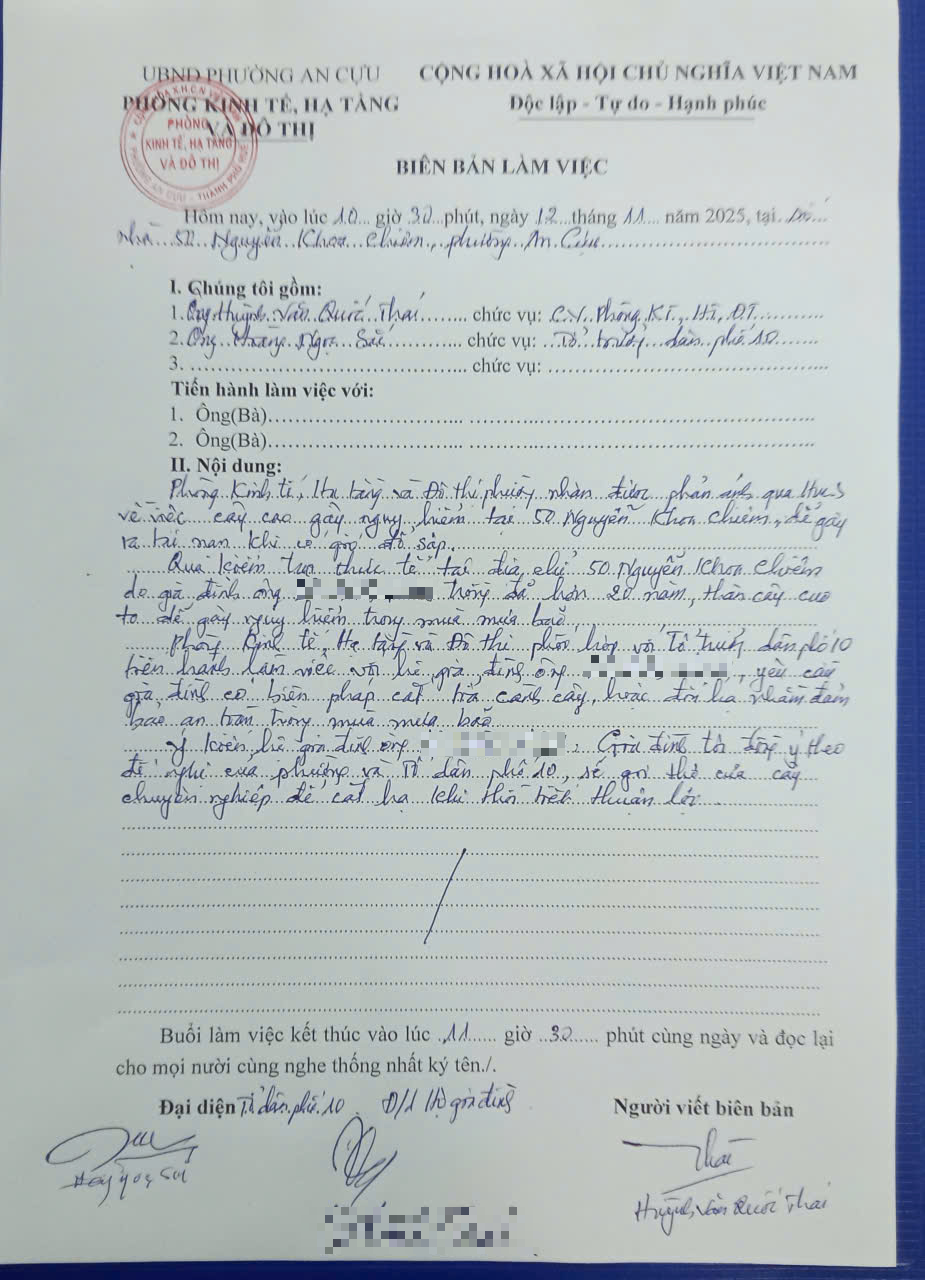 UBND PHƯỜNG AN CỰU
PHÒNG KINH TẾ, HẠ TẦNG
VÀ ĐÔ THỊ
CỘNG HOÀ XÃ HỘI CHỦ NGHĨA VIỆT NAM
Độc lập - Tự do - Hạnh phúc
PHÒNG
KINH TẾ, HẠ TẦNG
VÀ ĐÔ THỊ
PHƯỜNG AN CỰU - THÀNH PHỐ HUẾ
BIÊN BẢN LÀM VIỆC
Hôm nay, vào lúc 10 giờ 30 phút, ngày 12 tháng 11 năm 2025, tại
nhà 50 Nguyễn Khoa Chiêm, phường An Cựu
I. Chúng tôi gồm:
1. Ông Huỳnh Văn Quốc Thái chức vụ: C.V. Phòng KT, HT, ĐT
2. Ông Hoàng Ngọc Sắc chức vụ: Tổ trưởng dân phố 10
3. chức vụ:
Tiến hành làm việc với:
1. Ông(Bà)
2. Ông(Bà)
II. Nội dung:
Phòng Kinh tế, Hạ tầng và Đô thị phường nhận được phản ánh qua Hue-S
về việc cây cao gây nguy hiểm tại 50 Nguyễn Khoa Chiêm, dễ gây
ra tai nạn khi có gió đổ sập.
Qua kiểm tra thực tế tại địa chỉ 50 Nguyễn Khoa Chiêm
do gia đình ông trồng đã hơn 20 năm, thân cây cao
to dễ gây nguy hiểm trong mùa mưa bão,
Phòng Kinh tế, Hạ tầng và Đô thị phối hợp với Tổ trưởng dân phố 10
tiến hành làm việc với hộ gia đình ông , yêu cầu
gia đình có biện pháp cắt tỉa cành cây, hoặc đốn hạ nhằm đảm
bảo an toàn trong mùa mưa bão
Ý kiến hộ gia đình ông : Gia đình tôi đồng ý theo
đề nghị của phường và Tổ dân phố 10, sẽ gọi thợ cưa cây
chuyên nghiệp để cắt hạ khi thời tiết thuận lợi.
Buổi làm việc kết thúc vào lúc 11 giờ 30 phút cùng ngày và đọc lại
cho mọi nười cùng nghe thống nhất ký tên./.
Đại diện Tổ dân phố 10 Đ/d Hộ gia đình Người viết biên bản
Thái
Huỳnh Văn Quốc Thái